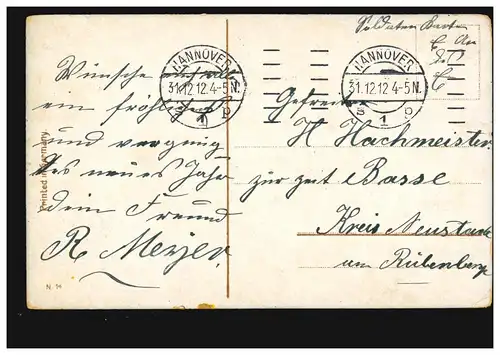 Soldaten Karte
HANNOVER
31.12.12.4-5N.
S 1 p
HANNOVER
31.12.12.4-5N.
S 1 p
Wünsche
ein fröhliches
und vergnüg
tes neues Jahr
dein Freund
R. Meyer.
Gefreiter
H Hachmeister
zur zeit Basse
Kreis Neustadt
am Rübenberg
Printed in Germany
N. 14